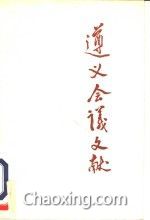 遵义会議文献
Chaoxing.com